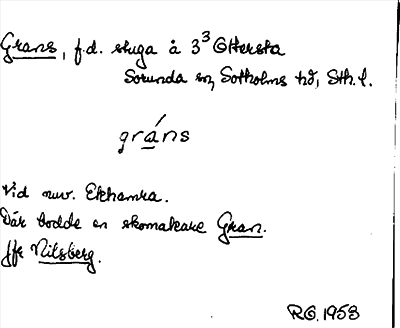 Grans, f.d. stuga å 3³ Ottersta
Sorunda sn, Sotholms hd, Sth. l.
gráns
Vid nuv. Ekhamra.
Där bodde en skomakare Gran.
Jfr Nilsberg.
RG. 1953